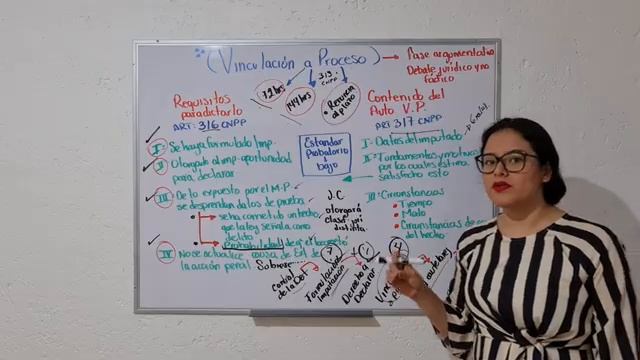 (Vinculación a Proceso)
Fase argumentativa
Debate jurídico y no
fáctico
72 hrs
144 hrs
313
CNPP
Renuncia
al plazo
Requisitos
para dictarlo
ART: 316 CNPP
I- Se haya formulado Imp.
II- Otorgado al imp. oportunidad
para declarar
III- De lo expuesto por el M.P
se desprendan datos de prueba
se ha cometido un hecho
que la ley señala como
delito
Probabilidad
IV No se actualice causa de Ext de
la acción penal
Sobrese
Estandar
Probatorio
bajo
J.C
otorgará
distinta
Contenido del
Auto V.P.
ART: 317 CNPP
I- Datos del imputado
II- Fundamentos y motivos
por los cuales estima
satisfecho esto
III- Circunstancias
Tiempo
Modo
Circunstancias de
del hecho
Control
de la Det
Formulación
Imputación
Derecho a
Declarar
4